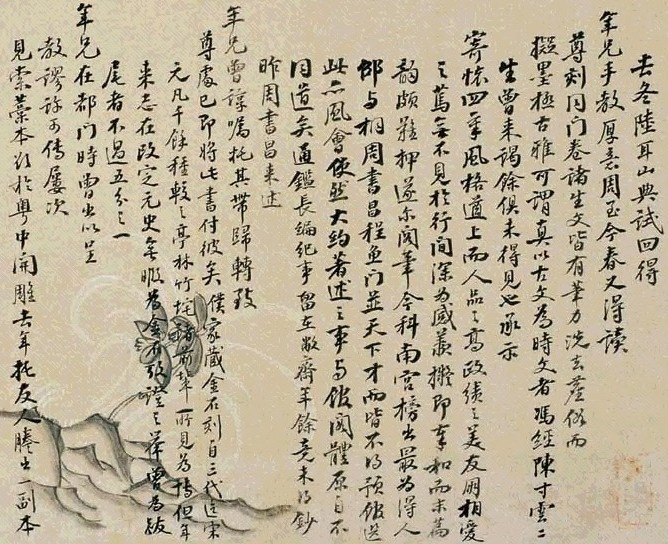 去冬陸耳山典試回得
年兄手教厚意周至今春又得讀
尊刻同門卷諸生文皆有筆力洗去塵俗而
擬墨極古雅可謂真以古文為時文者馮經陳寸雲二
生曾来謁餘俱未得見也承示
寄懷四章風格遒上而人品之高政績之美友朋相愛
之篤無不見於行間深為感羨擬即奉和而末篇
韻頗難押遂尓閣筆今科南宮榜出最為得人
邵与桐周書昌程魚門並天下才而皆不得預館選
此亦風會使然大約著述之事与館閣體原自不
同道矣通鑑長編紀事留在敝齋年餘竟未得鈔
昨周書昌来述
年兄曾諄囑托其帶歸轉致
尊處已即將此書付彼矣僕家藏金石刻自三代迄宋
元凡千餘種較之亭林竹垞諸前輩所見為博但年
来志在改定元史無暇為金石攷證之舉曾為跋
尾者不過五分之一
年兄在都門時曾出以呈
教謬許可傳屢次
見索藁本欲於粵中開雕去年托友人謄出一副本